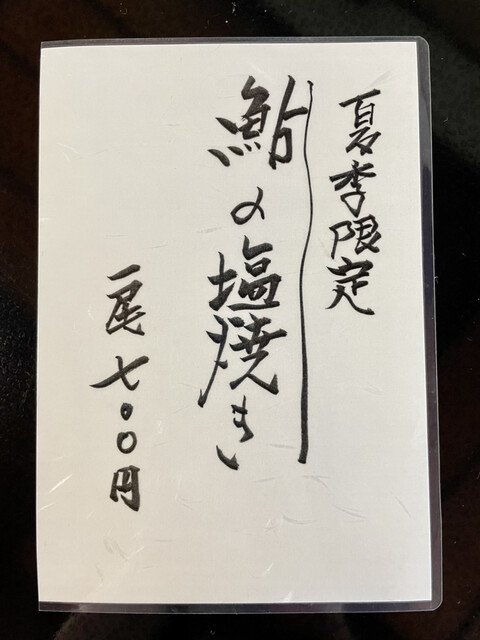 夏季限定
鮎の塩焼き
一尾七〇〇円